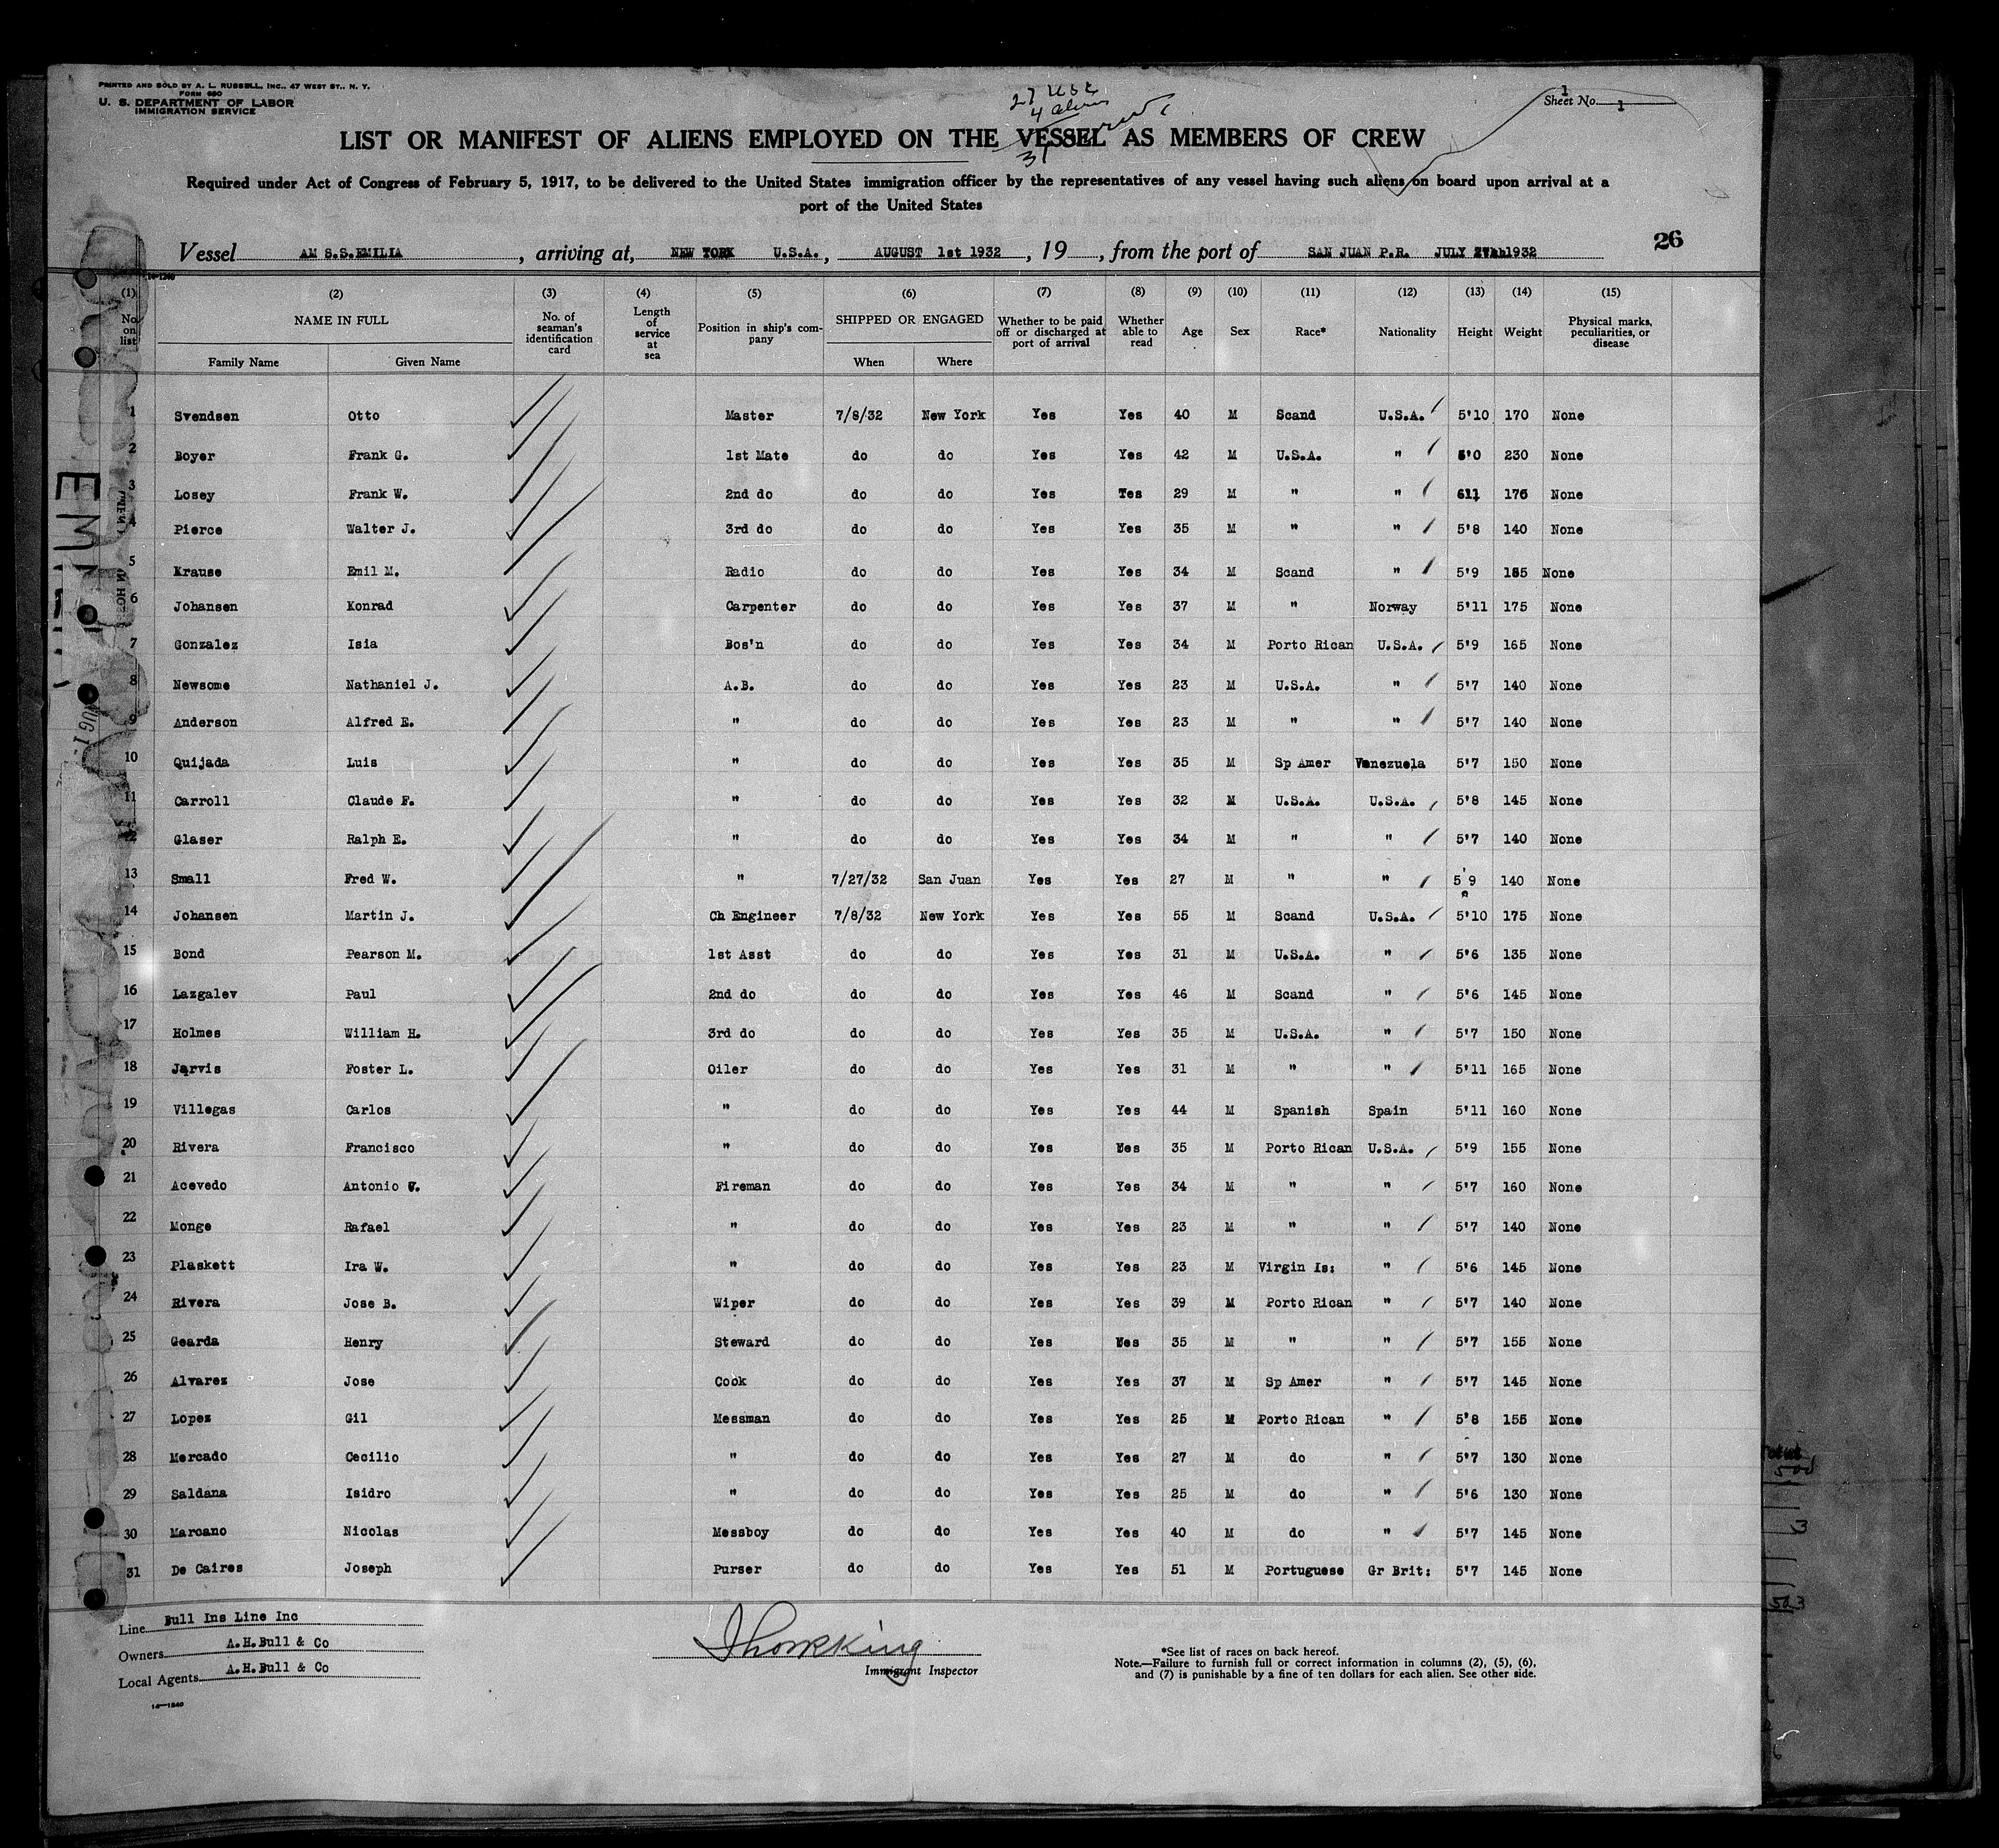 PRINTED AND SOLD BY A. L. RUSSELL, INC., 47 WEST ST., N. Y.
FORM 680
U. S. DEPARTMENT OF LABOR
IMMIGRATION SERVICE
27 USC
4 aliens
31
1
Sheet No. 1
LIST OR MANIFEST OF ALIENS EMPLOYED ON THE VESSEL AS MEMBERS OF CREW
Required under Act of Congress of February 5, 1917, to be delivered to the United States immigration officer by the representatives of any vessel having such aliens on board upon arrival at a
port of the United States
26
Vessel AM S.S.EMILIA, arriving at, NEW YORK U.S.A., AUGUST 1st 1932, 19, from the port of SAN JUAN P.R. JULY 1932
14-1240
(1) (2) (3) (4) (5) (6) (7) (8) (9) (10) (11) (12) (13) (14) (15)
No. on list NAME IN FULL Family Name Given Name No. of seaman's identification card Length of service at sea Position in ship's company SHIPPED OR ENGAGED When Where Whether to be paid off or discharged at port of arrival Whether able to read Age Sex Race* Nationality Height Weight Physical marks, peculiarities, or disease
1 Svendsen Otto Master 7/8/32 New York Yes Yes 40 M Scand U.S.A. 5'10 170 None
2 Boyer Frank G. 1st Mate do do Yes Yes 42 M U.S.A. " '0 230 None
3 Losey Frank W. 2nd do do do Yes Tes 29 M " " 611 176 None
4 Pierce Walter J. 3rd do do do Yes Yes 35 M " " 5'8 140 None
5 Krause Emil M. Radio do do Yes Yes 34 M Scand " 5'9 185 None
6 Johansen Konrad Carpenter do do Yes Yes 37 M " Norway 5'11 175 None
7 Gonzalez Isia Bos'n do do Yes Yes 34 M Porto Rican U.S.A. 5'9 165 None
8 Newsome Nathaniel J. A.B. do do Yes Yes 23 M U.S.A. " 5'7 140 None
9 Anderson Alfred E. " do do Yes Yes 23 M " " 5'7 140 None
10 Quijada Luis " do do Yes Yes 35 M Sp Amer Venezuela 5'7 150 None
11 Carroll Claude F. " do do Yes Yes 32 M U.S.A. U.S.A. 5'8 145 None
12 Glaser Ralph E. " do do Yes Yes 34 M " " 5'7 140 None
13 Small Fred W. " 7/27/32 San Juan Yes Yes 27 M " " 5'9 140 None
14 Johansen Martin J. Ch Engineer 7/8/32 New York Yes Yes 55 M Scand U.S.A. 5'10 175 None
15 Bond Pearson M. 1st Asst do do Yes Yes 31 M U.S.A. " 5'6 135 None
16 Lazgalev Paul 2nd do do do Yes Yes 46 M Scand " 5'6 145 None
17 Holmes William H. 3rd do do do Yes Yes 35 M U.S.A. " 5'7 150 None
18 Jarvis Foster L. Oiler do do Yes Yes 31 M " " 5'11 165 None
19 Villegas Carlos " do do Yes Yes 44 M Spanish Spain 5'11 160 None
20 Rivera Francisco " do do Yes Yes 35 M Porto Rican U.S.A. 5'9 155 None
21 Acevedo Antonio Fireman do do Yes Yes 34 M " " 5'7 160 None
22 Monge Rafael " do do Yes Yes 23 M " " 5'7 140 None
23 Plaskett Ira W. " do do Yes Yes 23 M Virgin Is: " 5'6 145 None
24 Rivera Jose B. Wiper do do Yes Yes 39 M Porto Rican " 5'7 140 None
25 Gearda Henry Steward do do Yes Yes 35 M " " 5'7 155 None
26 Alvarez Jose Cook do do Yes Yes 37 M Sp Amer " 5'7 145 None
27 Lopez Gil Messman do do Yes Yes 25 M Porto Rican " 5'8 155 None
28 Mercado Cecilio " do do Yes Yes 27 M do " 5'7 130 None
29 Saldana Isidro " do do Yes Yes 25 M do " 5'6 130 None
30 Marcano Nicolas Messboy do do Yes Yes 40 M do " 5'7 145 None
31 De Caires Joseph Purser do do Yes Yes 51 M Portuguese Gr Brit: 5'7 145 None
Line Bull Ins Line Inc
Owners A.H.Bull & Co
Local Agents A.H.Bull & Co
14-1240
Immigrant Inspector
*See list of races on back hereof.
Note.—Failure to furnish full or correct information in columns (2), (5), (6),
and (7) is punishable by a fine of ten dollars for each alien. See other side.